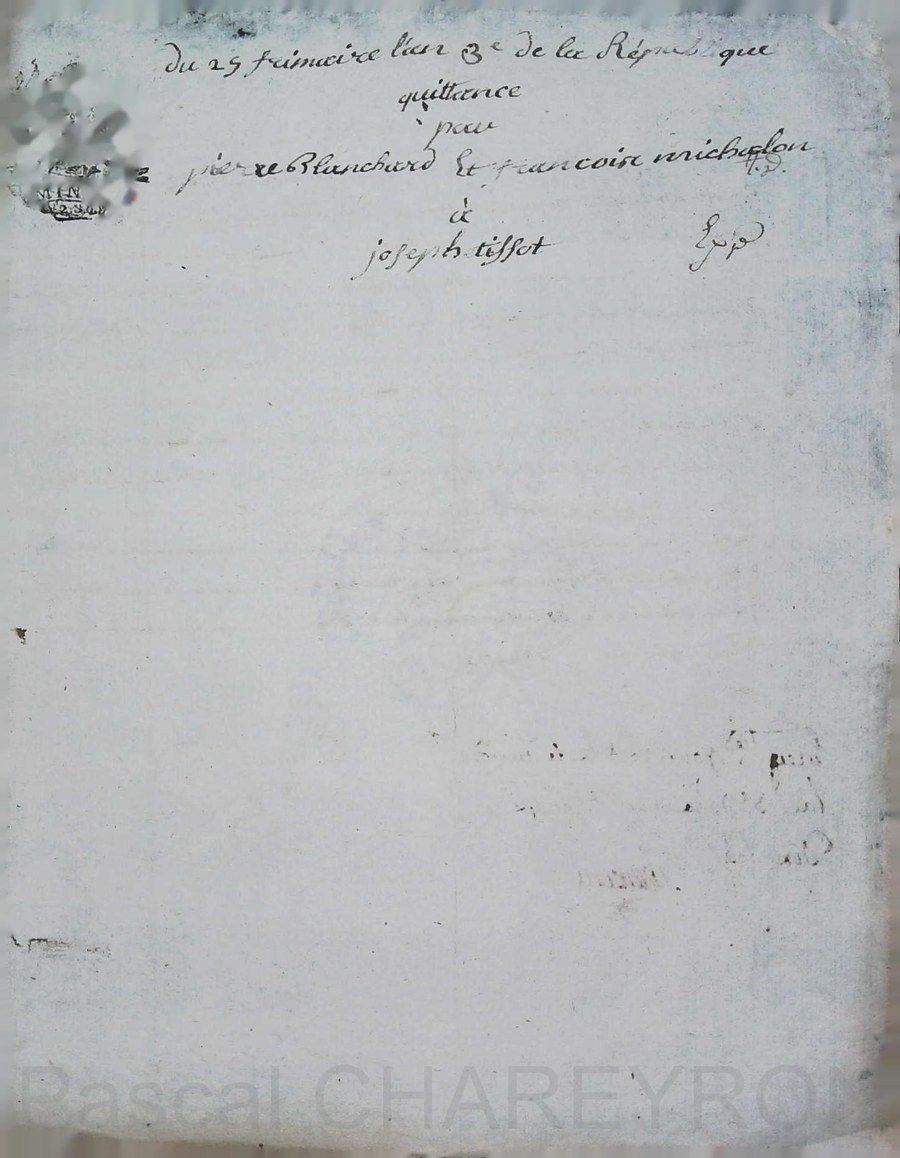 Du 25 frimaire l'an 3e de la République
quittance
par
pierre Blanchard Et francoise michalon
à
joseph tissot
Exp
Pascal CHAREYRON